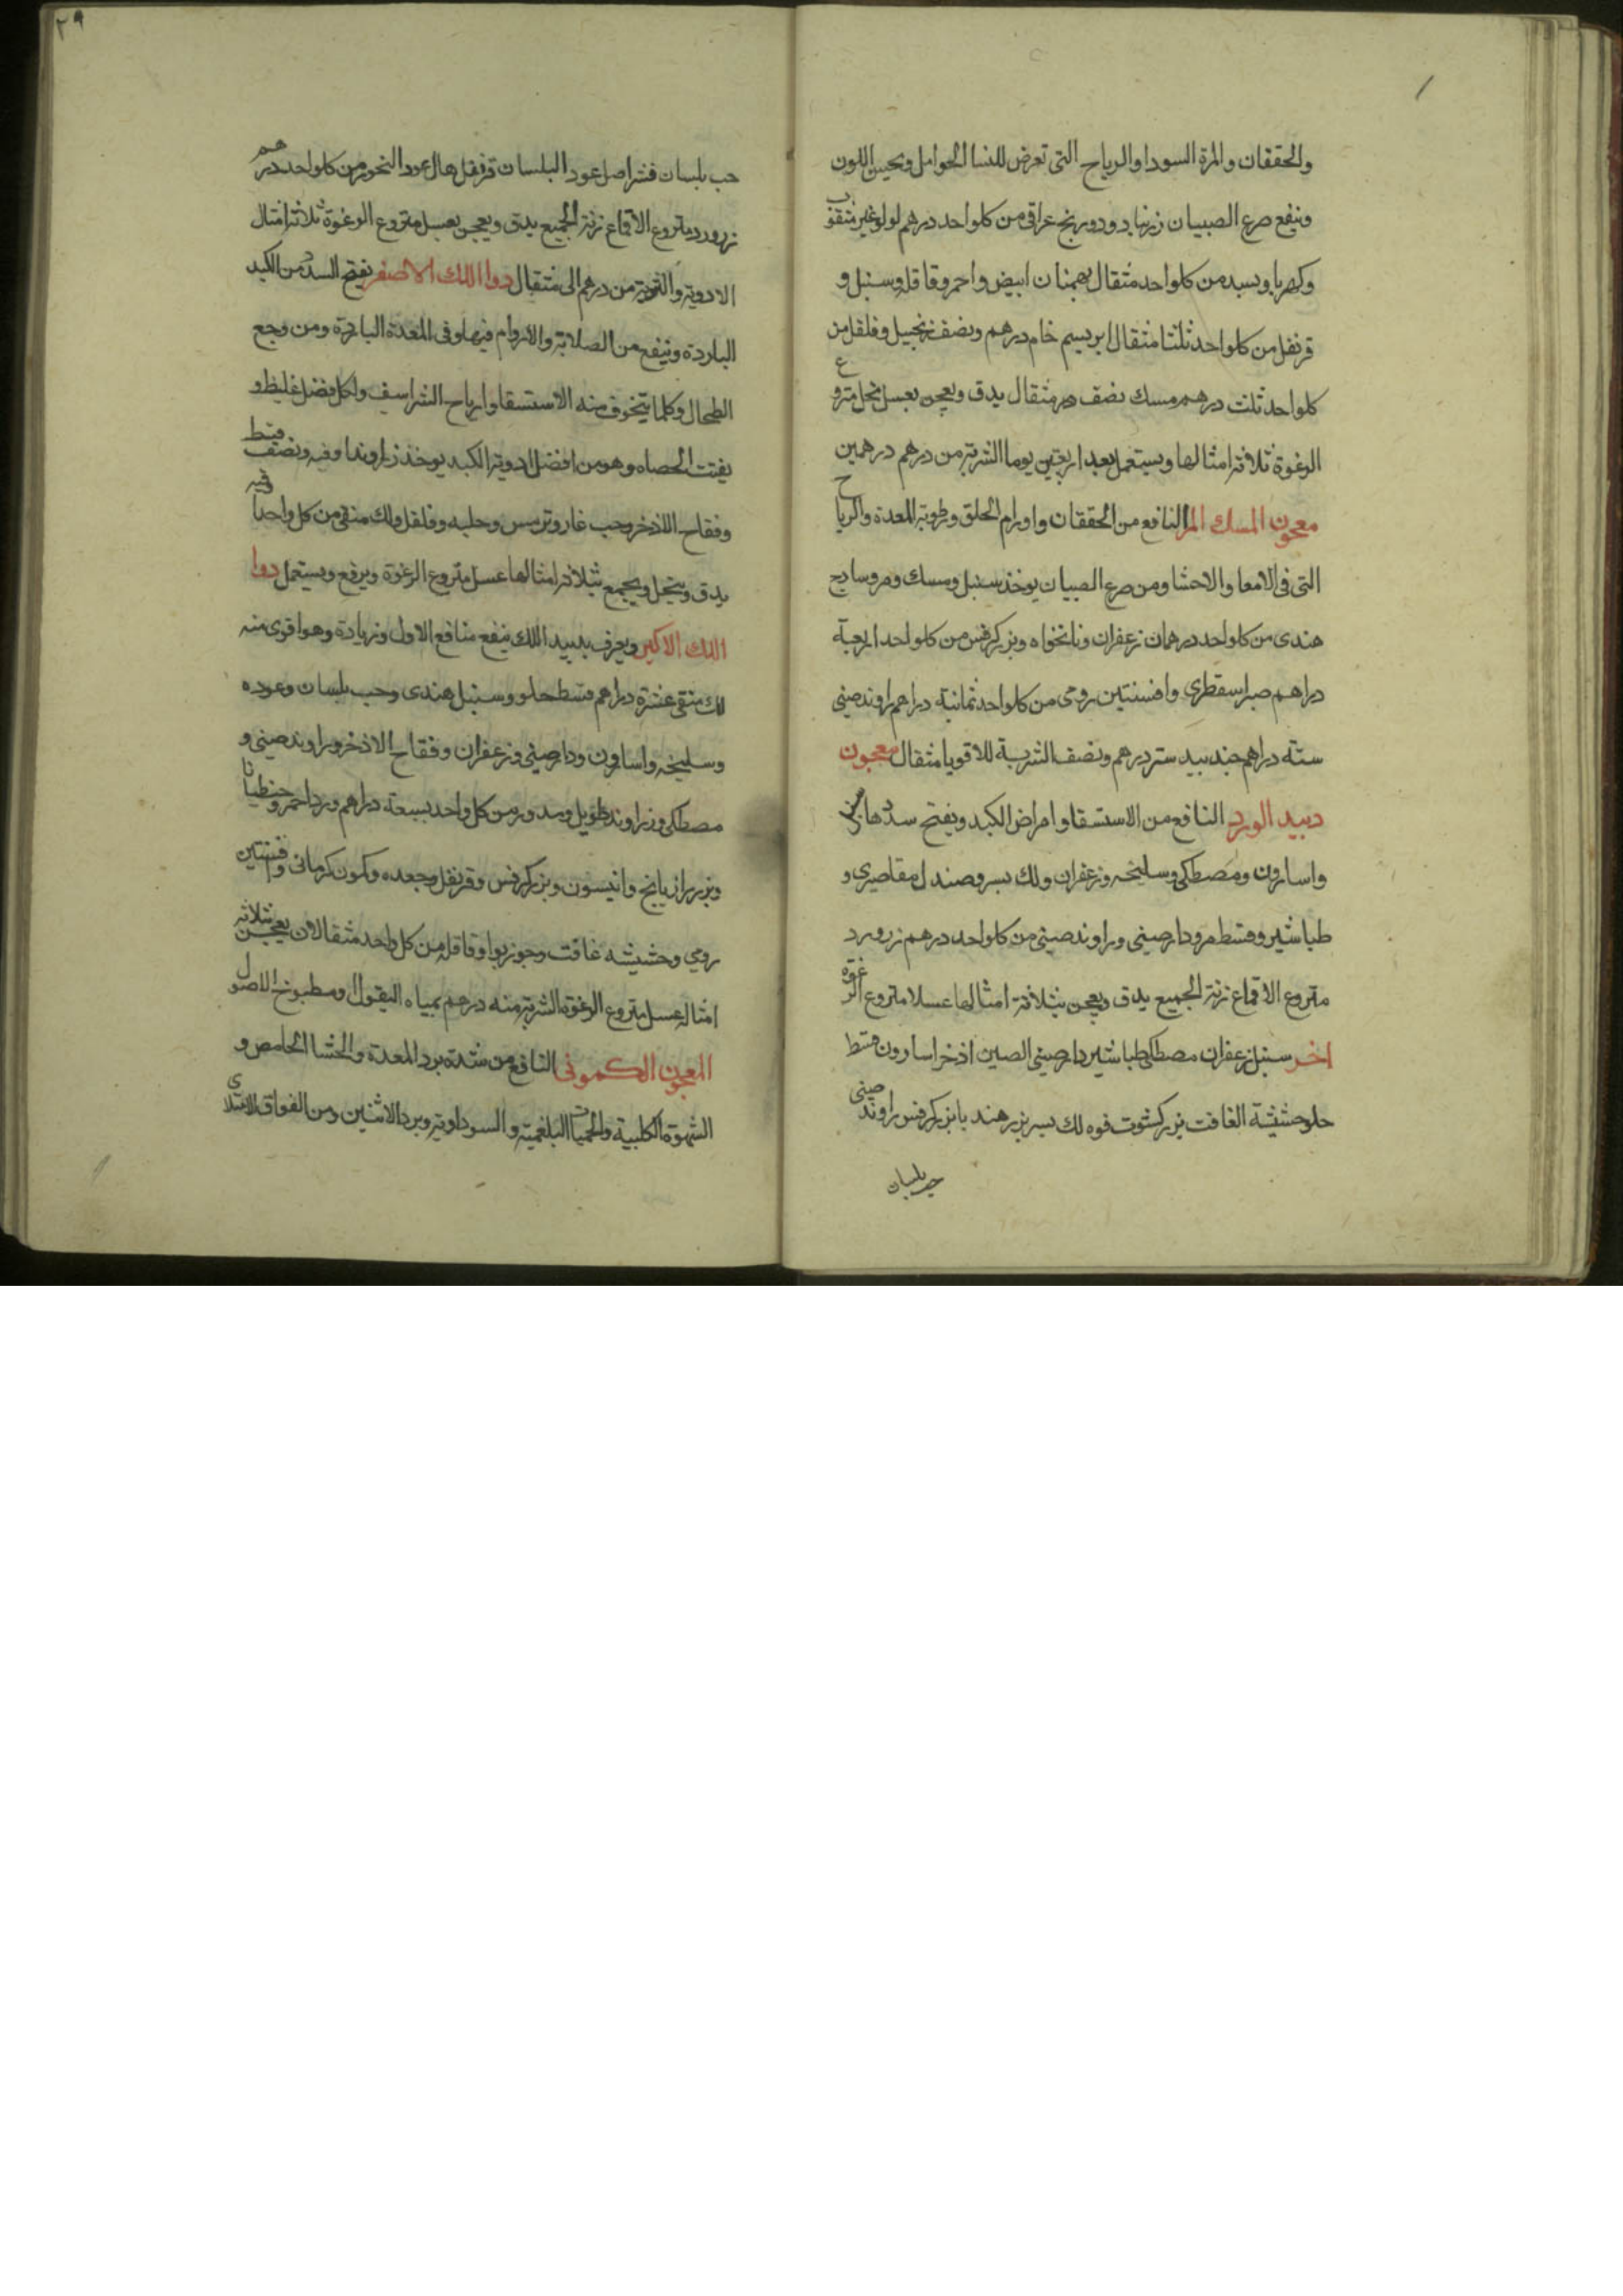 والخفقان والمرة السودا والرياح التى تعرض للنسا الحوامل ويحسن اللون
وينفع صرع الصبيان زرنباد ودورنج عراقى من كلواحد درهم لولو غير مثقوب
وكهربا وبسد من كلواحد مثقال بهمنان ابيض واحمر وقاقله وسنبل و
قرنفل من كلواحد ثلثا مثقال ابريسم خام درهم ونصف زنجبيل وفلفل من
كلواحد ثلث درهم مسك نصف مثقال يدق ويعجن بعسل نحل منزوع
الرغوة ثلاثة امثالها ويستعمل بعد اربعين يوما الشربة من درهم درهمين
معجون المسك المر النافع من الخفقان واورام الحلق ورطوبة المعدة والرياح
التى فى الامعا والاحشا ومن صرع الصبيان يوخذ سنبل ومسك ومر وسادج
هندى من كلواحد درهمان زعفران ونانخواه وبزر كرفس من كلواحد اربعة
دراهم صبر اسقطرى وافسنتين رومى من كلواحد ثمانية دراهم راوند صينى
ستة دراهم جندبيدستر درهم ونصف الشربة للاقويا مثقال معجون
دبيد الورد النافع من الاستسقا وامراض الكبد ويفتح سددها
واسارون ومصطكى وسليخه وزعفران ولك بسر وصندل مقاصيرى و
طباشير وقسط مر ودارصينى وراوند صينى من كلواحد درهم زرورد
منزوع الاقماع زنة الجميع يدق ويعجن بثلاثة امثالها عسلا منزوع الرغوة
اخر سنبل زعفران مصطكى طباشير دارصينى الصين اذخر اسارون قسط
حلو حشيشة الغافت بزر كشوت فوه لك بسر بزر هندبا بزر كرفس راوند صينى
حب بلسان
٢٩
حب بلسان قشر اصل عود البلسان قرنفل هال عود البخور من كلواحد درهم
زرورد منزوع الاقماع زنة الجميع يدق ويعجن بعسل منزوع الرغوة ثلاثة امثال
الادوية والشربة من درهم الى مثقال دوا اللك الاصغر يفتح السدد من الكبد
الباردة وينفع من الصلابة والاورام فيها وفى المعدة الباردة ومن وجع
الطحال وكلما يتخوف منه الاستسقا وارياح الشراسيف ولكل فضل غليظ و
يفتت الحصاه وهو من افضل ادوية الكبد يوخذ زراوندا وقيه ونصف قسط
وفقاح الاذخر وحب غار وترمس وحلبه وفلفل ولك منقى من كل واحد اوقيه
يدق وينخل ويجمع بثلاثة امثالها عسل منزوع الرغوة ويرفع ويستعمل دوا
اللك الاكبر ويعرف بدبيد اللك ينفع منافع الاول وزيادة وهو اقوى منه
لك منقى عشرة دراهم قسط حلو وسنبل هندى وحب بلسان وعوده
وسليخه واسارون ودارصينى وزعفران وفقاح الاذخر وراوند صينى و
مصطكى وزراوند طويل ومدور من كل واحد سبعة دراهم ورد احمر وجنطيانا
وبزر رازيانج وانيسون وبزر كرفس وقرنفل وجعده وكمون كرمانى وافسنتين
رومي وحشيشه غافت وجوزبوا وقاقله من كل واحد مثقالان يعجن بثلاثة
امثاله عسل منزوع الرغوة الشربة منه درهم بمياه البقول ومطبوخ الاصول
المعجون الكمونى النافع من شدة برد المعدة والجشا الحامض و
الشهوة الكلبية والحميات البلغمية والسوداوية وبرد الانثيين ومن الفواق الامتلاى